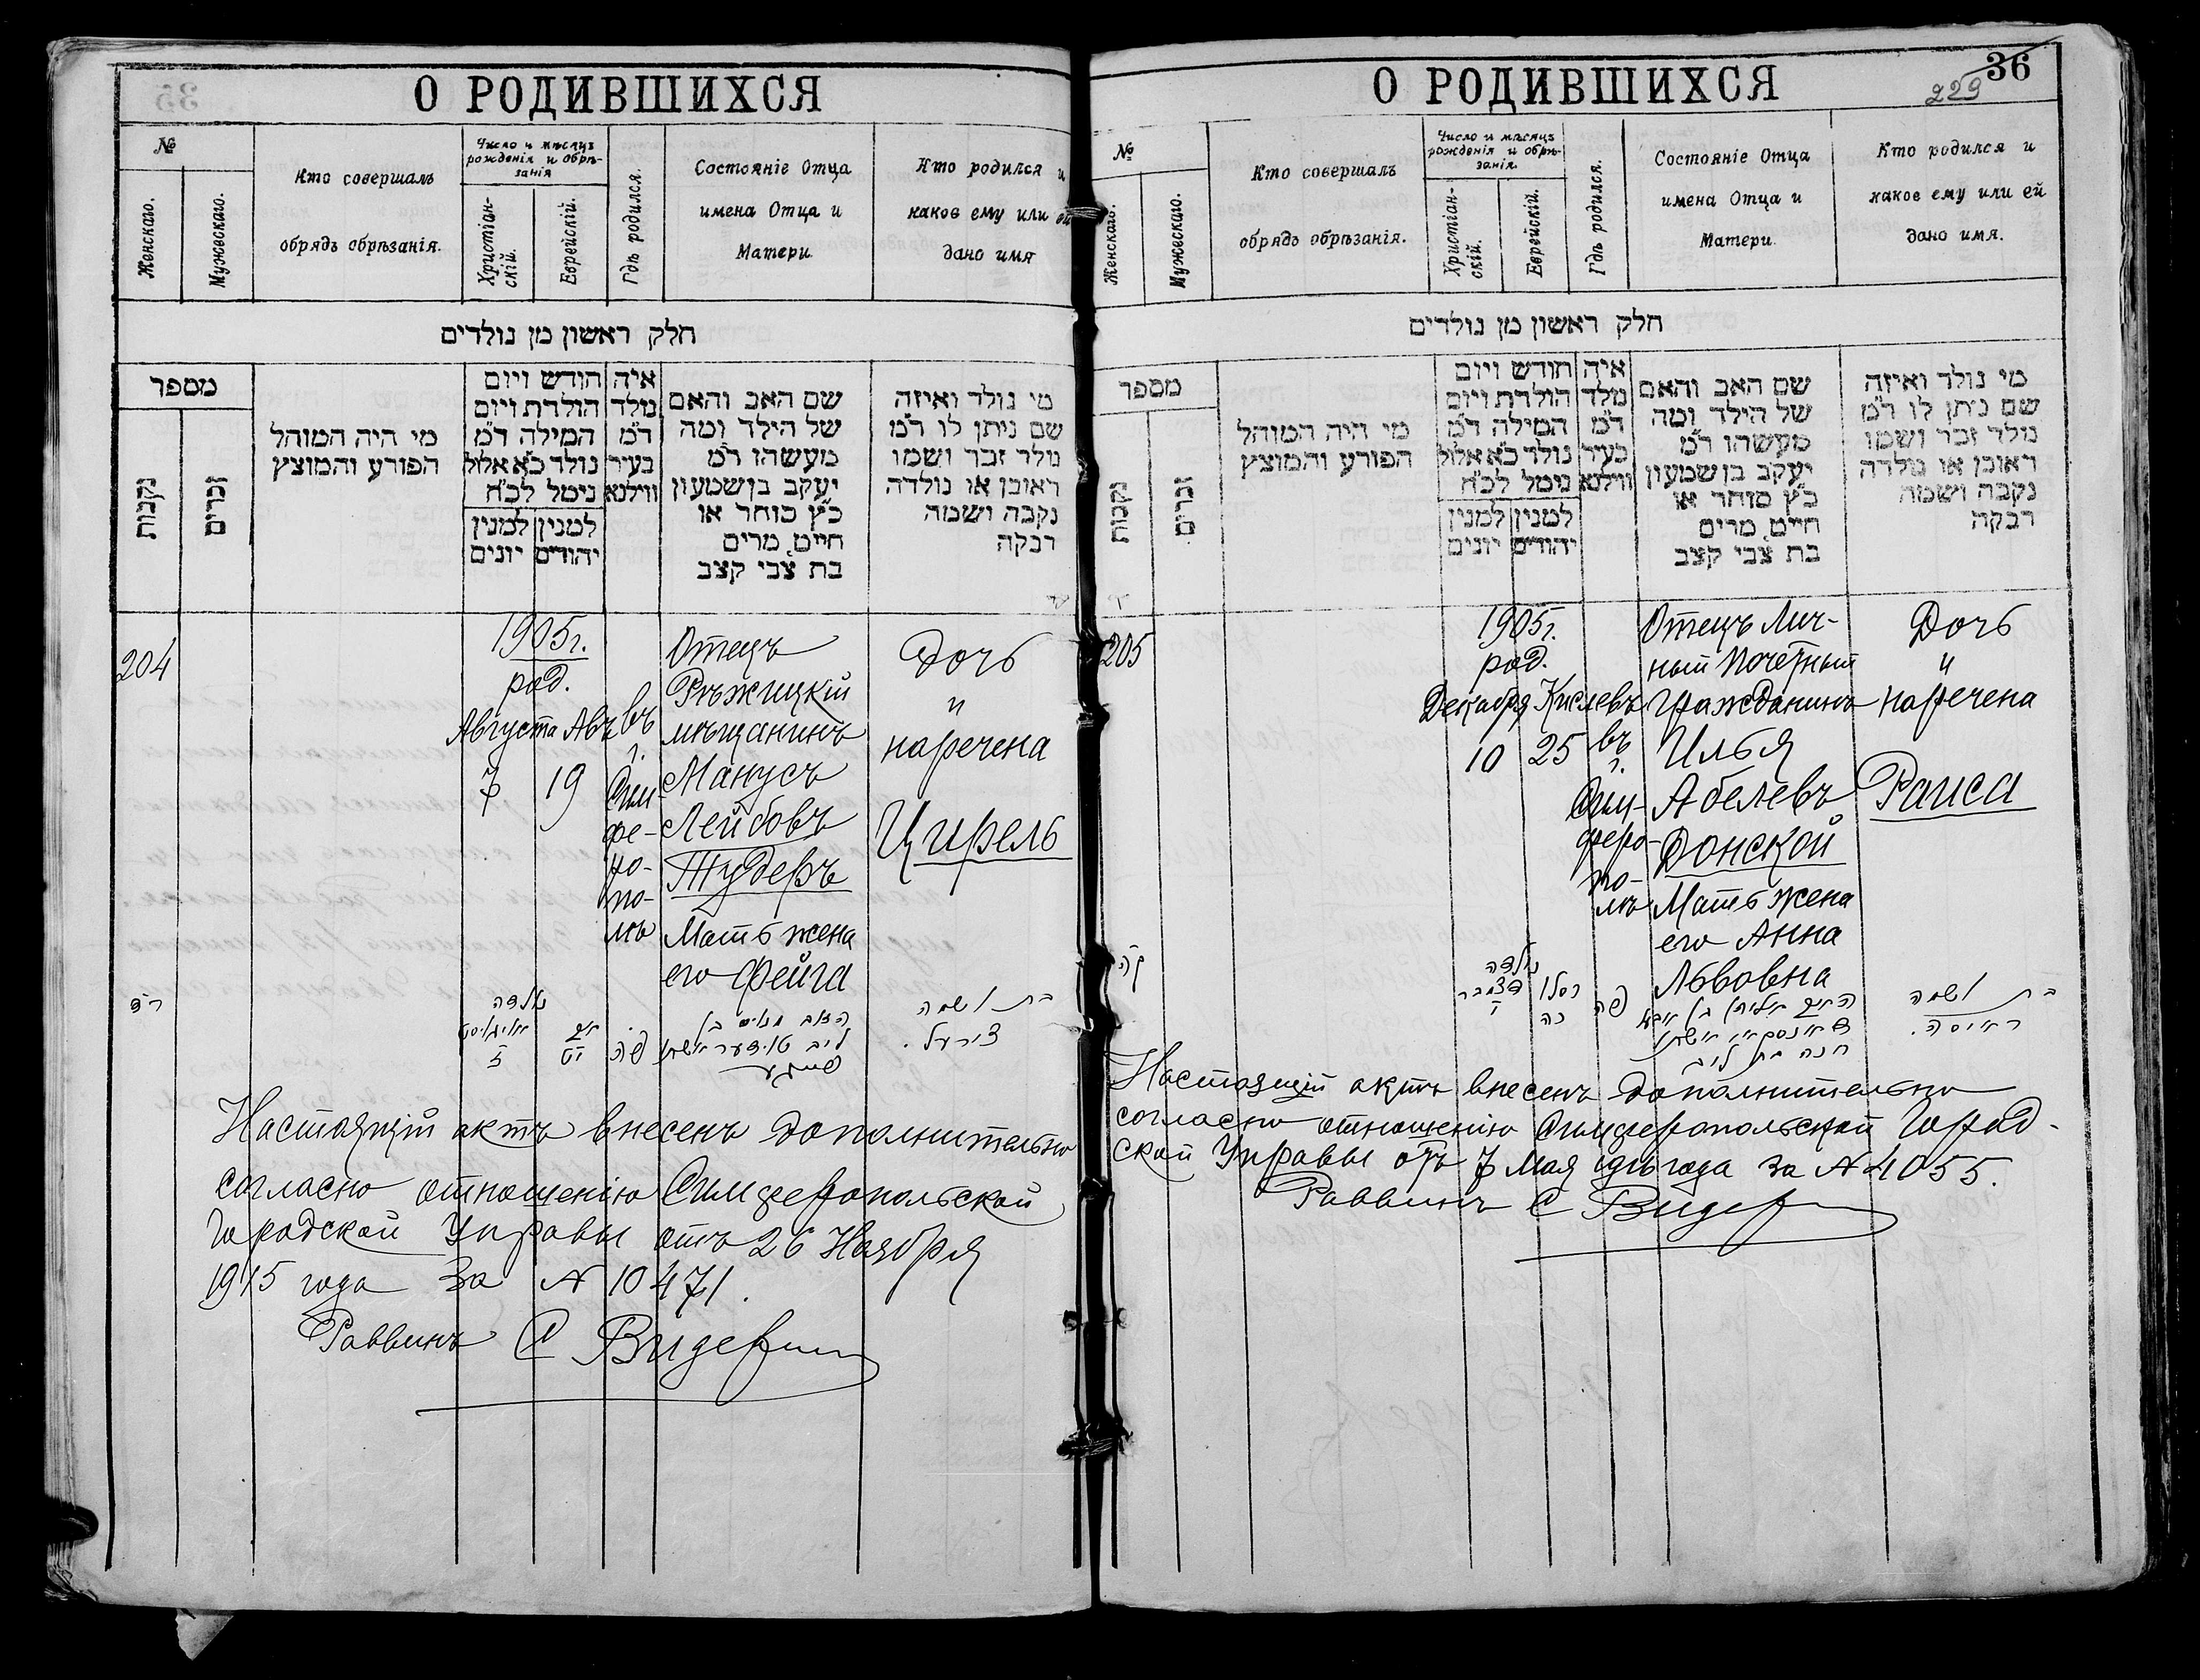 О РОДИВШИХСЯ
№
Женскаго.
Мужескаго.
Кто совершалъ
обрядъ обрѣзанія.
Число и мѣсяцъ
рожденія и обрѣ-
занія
Христіан-
скій.
Еврейскій.
Гдѣ родился.
Состояніе Отца
имена Отца и
Матери.
Кто родился и
какое ему или ей
дано имя
חלק ראשון מן נולדים
מספר
נקבות
זכרים
מי היה המוהל
הפורע והמוצץ
חודש ויום
הולדת ויום
המילה ד״מ
נולד כ״א אלול
נימל לכ״ח
למנין יהודים
למנין יונים
איה
נולד
ד״מ
בעיר
ווילנא
שם האב והאם
של הילד ומה
מעשהו ד״מ
יעקב בן שמעון
כ״ץ סוחר או
חייט מרים
בת צבי קצב
מי נולד ואיזה
שם ניתן לו ד״מ
נולד זכר ושמו
ראובן או נולדה
נקבה ושמה
רבקה
204
1905 г.
род.
Августа Авъ
7 19
въ
г.
Сим-
фе-
ро-
по-
лѣ
Отецъ
Рѣжицкій
мѣщанинъ
Манусъ
Лейбовъ
Тудеръ
Мать жена
его Фейга
Дочь
и
наречена
Цирель
ר״ד
נולדה
ז
יט
פה
האב מנוס בן
ליב טודער ואשתו
פייגע
בת ושמה
צירעל.
Настоящій актъ внесенъ дополнительно
согласно отношенію Симферопольской
Городской Управы отъ 26 Ноября
1915 года за № 10471.
Раввинъ С
О РОДИВШИХСЯ
36
229
№
Женскаго.
Мужескаго.
Кто совершалъ
обрядъ обрѣзанія.
Число и мѣсяцъ
рожденія и обрѣ-
занія.
Христіан-
скій.
Еврейскій.
Гдѣ родился.
Состояніе Отца
имена Отца и
Матери.
Кто родился и
какое ему или ей
дано имя.
חלק ראשון מן נולדים
מספר
נקבות
זכרים
מי היה המוהל
הפורע והמוצץ
חודש ויום
הולדת ויום
המילה ד״מ
נולד כ״א אלול
נימל לכ״ח
למנין יהודים
למנין יונים
איה
נולד
ד״מ
בעיר
ווילנא
שם האב והאם
של הילד ומה
מעשהו ד״מ
יעקב בן שמעון
כ״ץ סוחר או
חייט מרים
בת צבי קצב
מי נולד ואיזה
שם ניתן לו ד״מ
נולד זכר ושמו
ראובן או נולדה
נקבה ושמה
רבקה
205
1905 г.
род.
Декабря Кислевъ
10 25
въ
г.
Сим-
феро-
по-
лѣ
Отецъ Лич-
ный Почетный
Гражданинъ
Илья
Абелевъ
Донской
Мать жена
его Анна
Львовна
Дочь
и
наречена
Раиса
נולדה
דצמבר
י
כסלו
כה
פה
חנה בת ליב
בת ושמה
ראיסה.
Настоящій актъ внесенъ дополнительно
согласно отношенію Симферопольской Город-
ской Управы отъ 7 Мая 1916 года за № 4055.
Раввинъ С